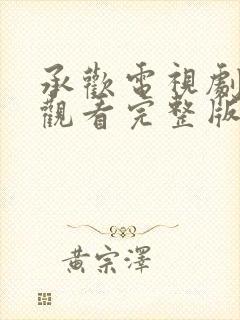 承歡電視劇
觀看完整版
黃宗澤